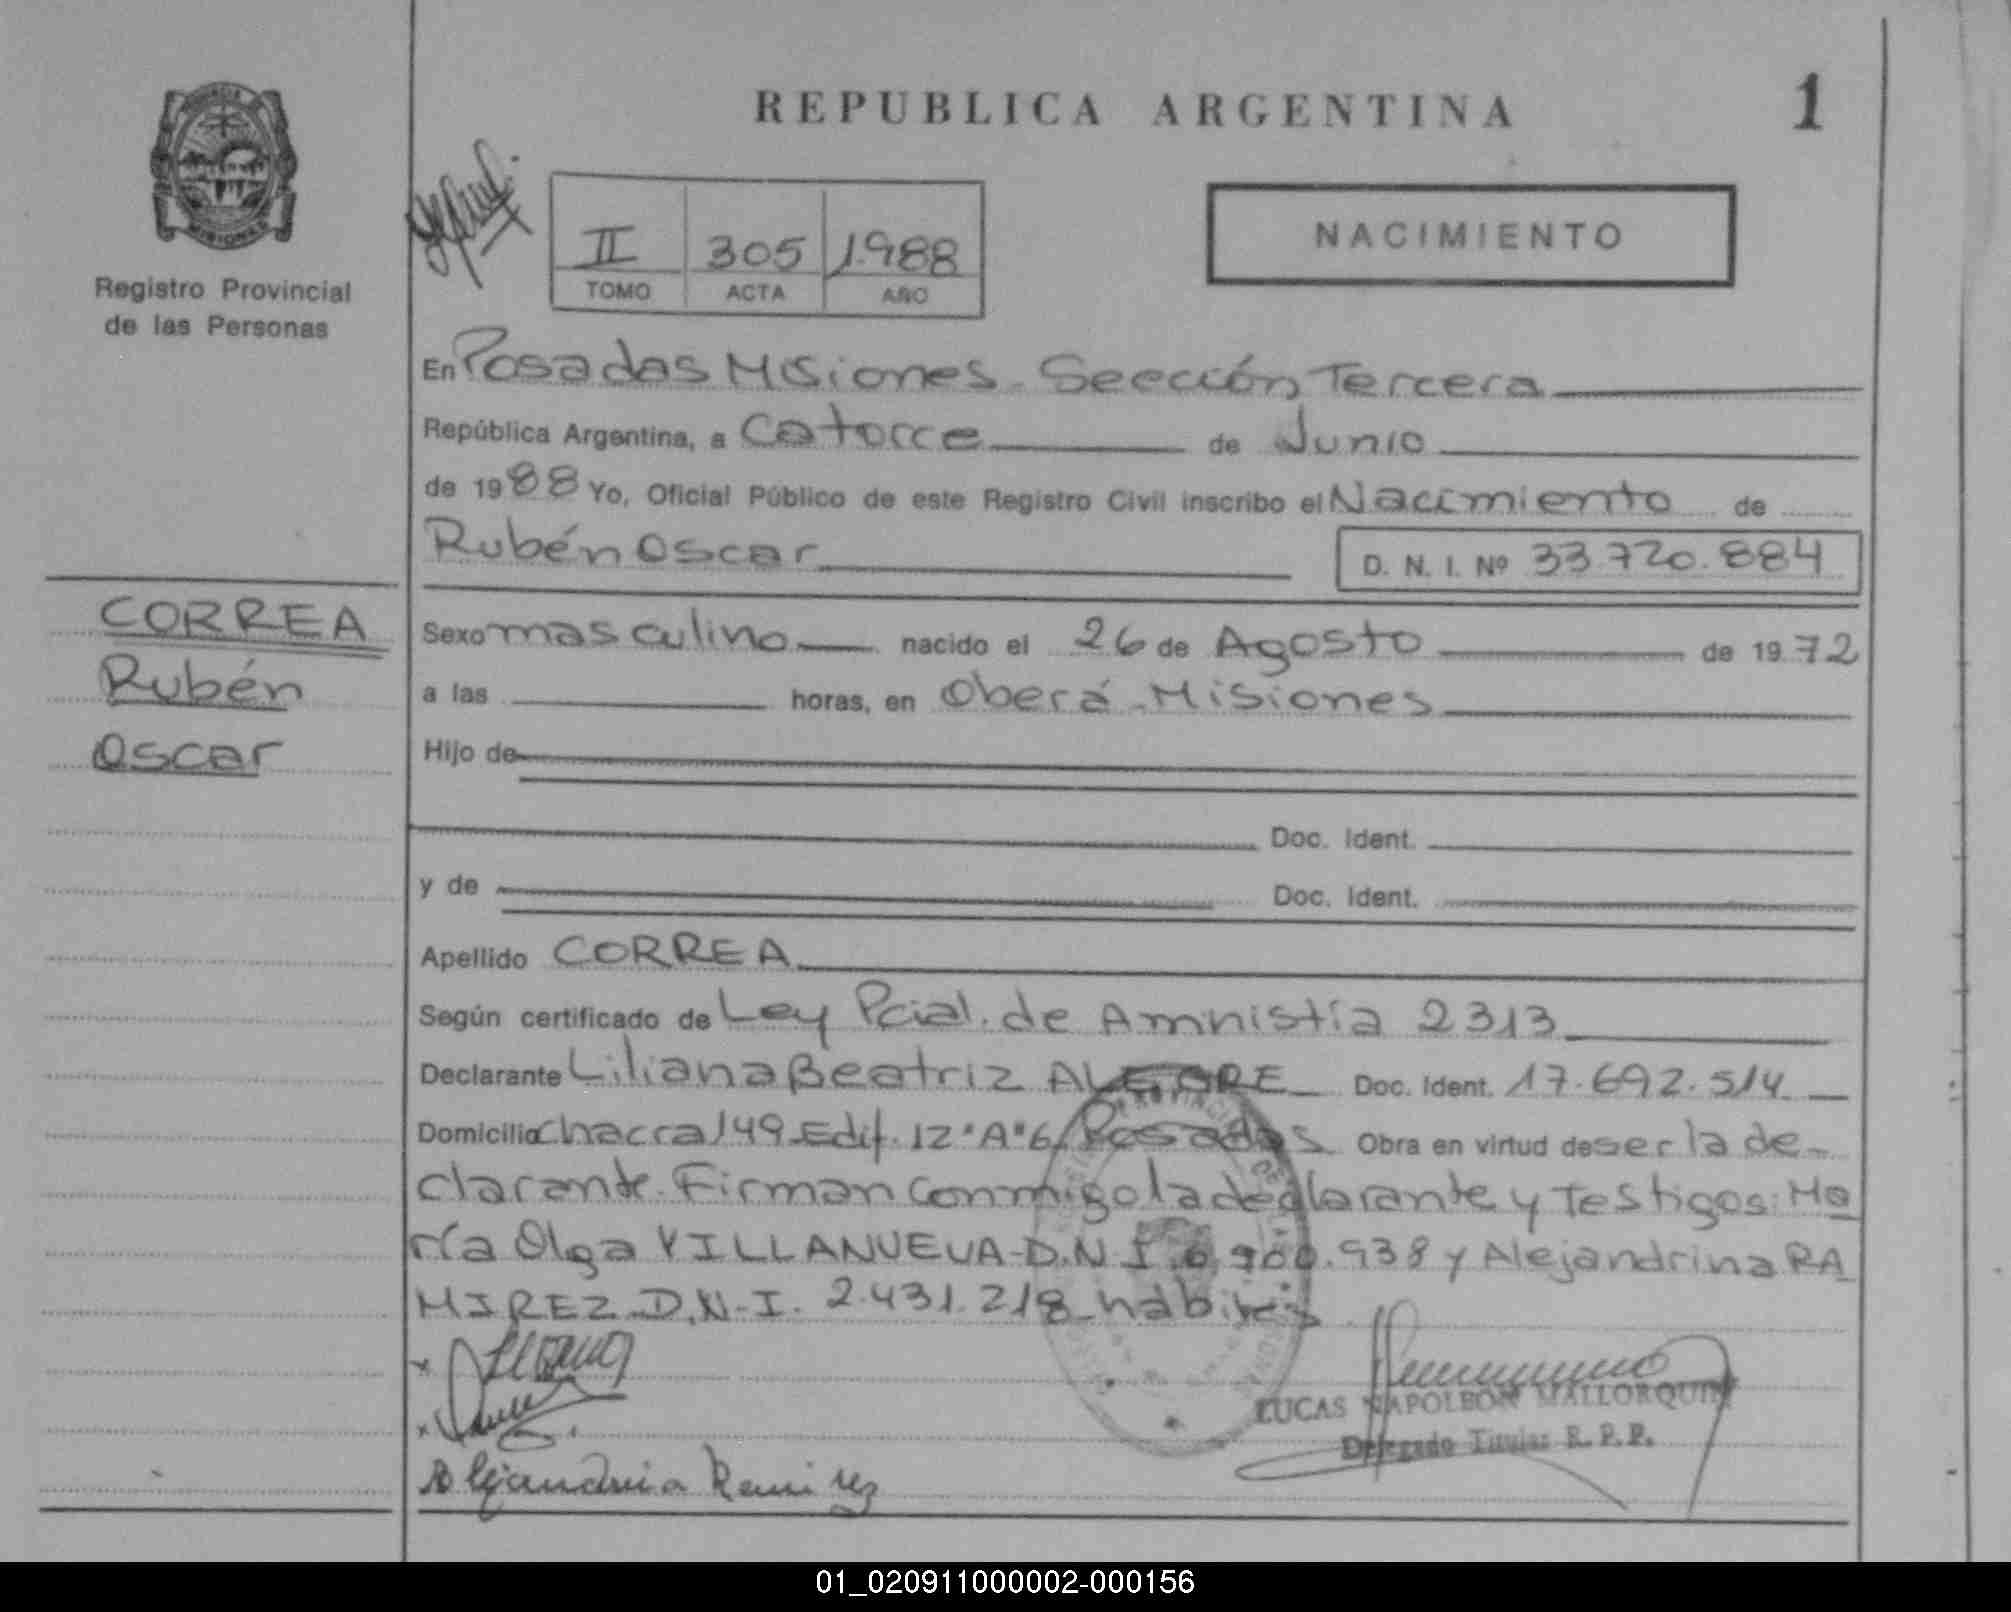 REPUBLICA ARGENTINA
1
PROVINCIA
MISIONES
Registro Provincial
de las Personas
II 305 1.988
TOMO ACTA AÑO
NACIMIENTO
En Posadas Misiones - Sección Tercera
República Argentina, a Catorce de Junio
de 1988 Yo, Oficial Público de este Registro Civil inscribo el Nacimiento de
Rubén Oscar
D. N. I. Nº 33.720.884
CORREA
Rubén
Oscar
Sexo masculino nacido el 26 de Agosto de 1972
a las horas, en Oberá - Misiones
Hijo de
Doc. Ident.
y de Doc. Ident.
Apellido CORREA
Según certificado de Ley Pcial. de Amnistía 2313
Declarante Liliana Beatriz ALEGRE Doc. Ident. 17.692.514
Domicilio Chacra 149 Edif. 12 "A" 6 Posadas Obra en virtud de ser la de-
clarante. Firman conmigo la declarante y Testigos: Ma
ría Olga VILLANUEVA - D.N.I. 6.900.938 y Alejandrina RA
MIREZ D.N.I. 2.431.218 hábiles
LUCAS NAPOLEON MALLORQUIN
Delegado Titular R. P. P.
Alejandrina Ramirez
01_020911000002-000156